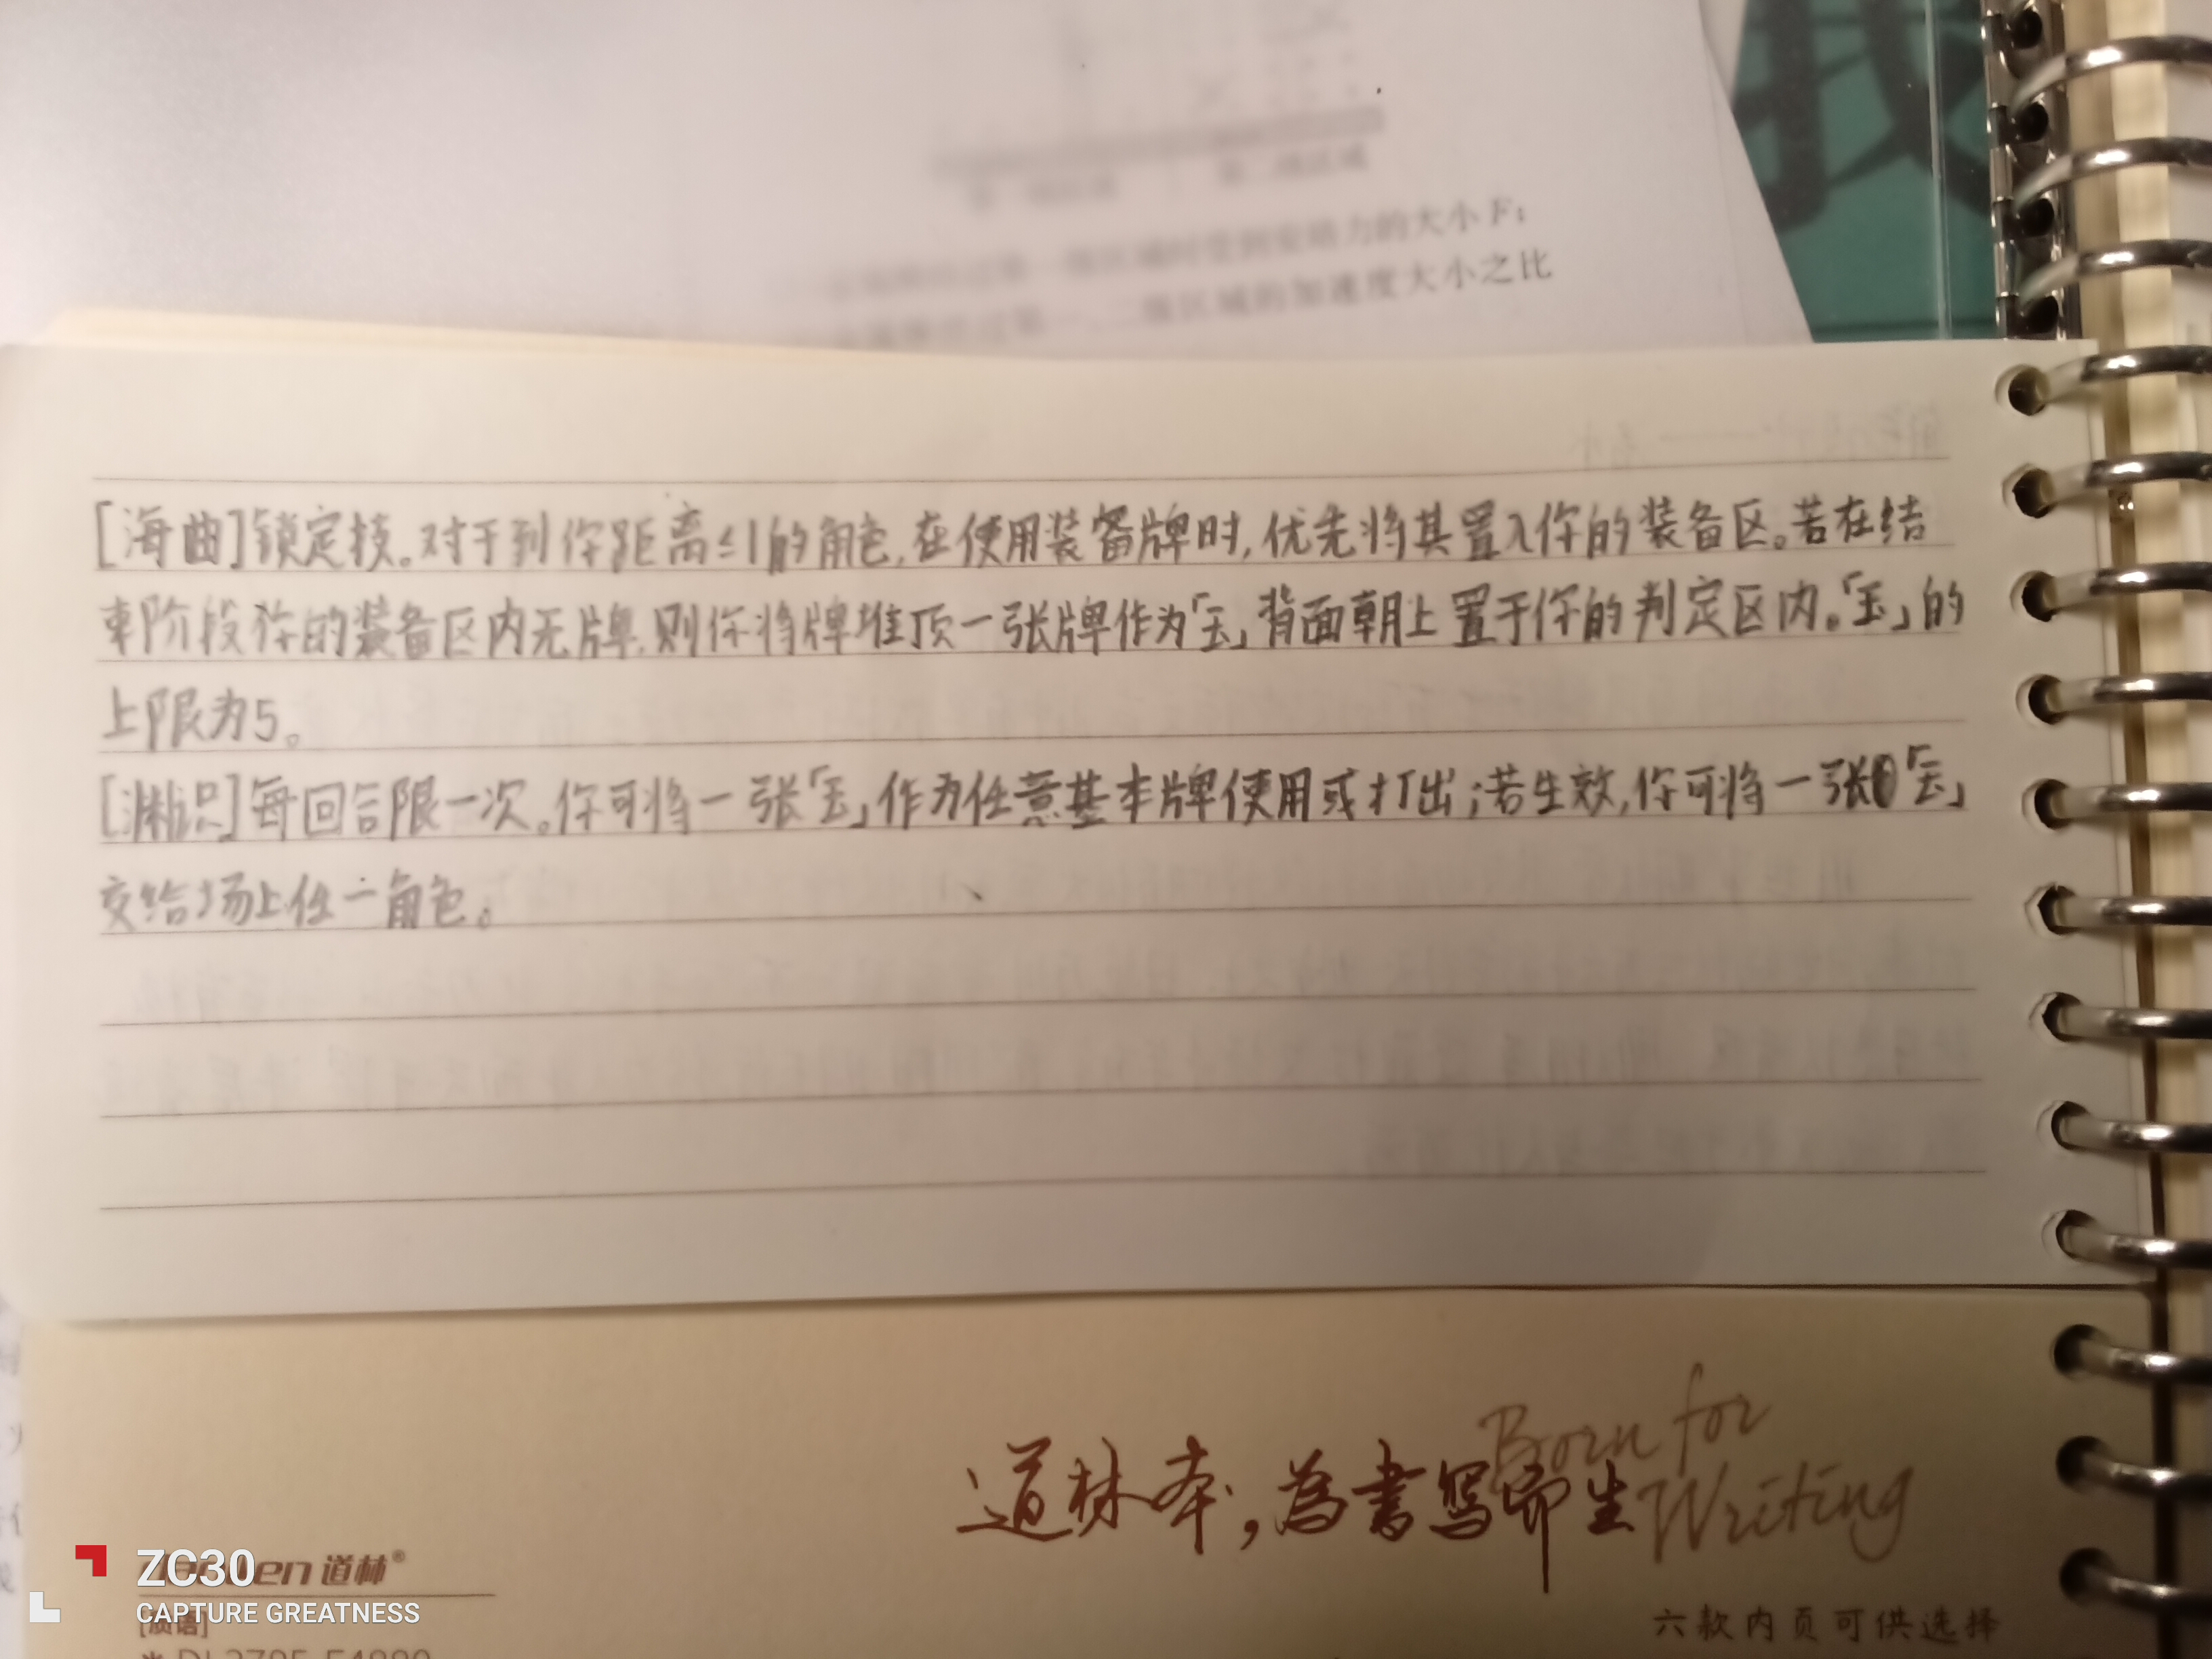 力的大小F；
第一、二级区域的加速度大小之比
[海曲]锁定技。对于到你距离≤1的角色,在使用装备牌时,优先将其置入你的装备区。若在结
束阶段你的装备区内无牌,则你将牌堆顶一张牌作为「玉」背面朝上置于你的判定区内。「玉」的
上限为5。
[渊识]每回合限一次。你可将一张「玉」作为任意基本牌使用或打出;若生效,你可将一张「玉」
交给场上任一角色。
Born for
道林本，為書寫而生
Writing
道林®
ZC30
CAPTURE GREATNESS
六款内页可供选择